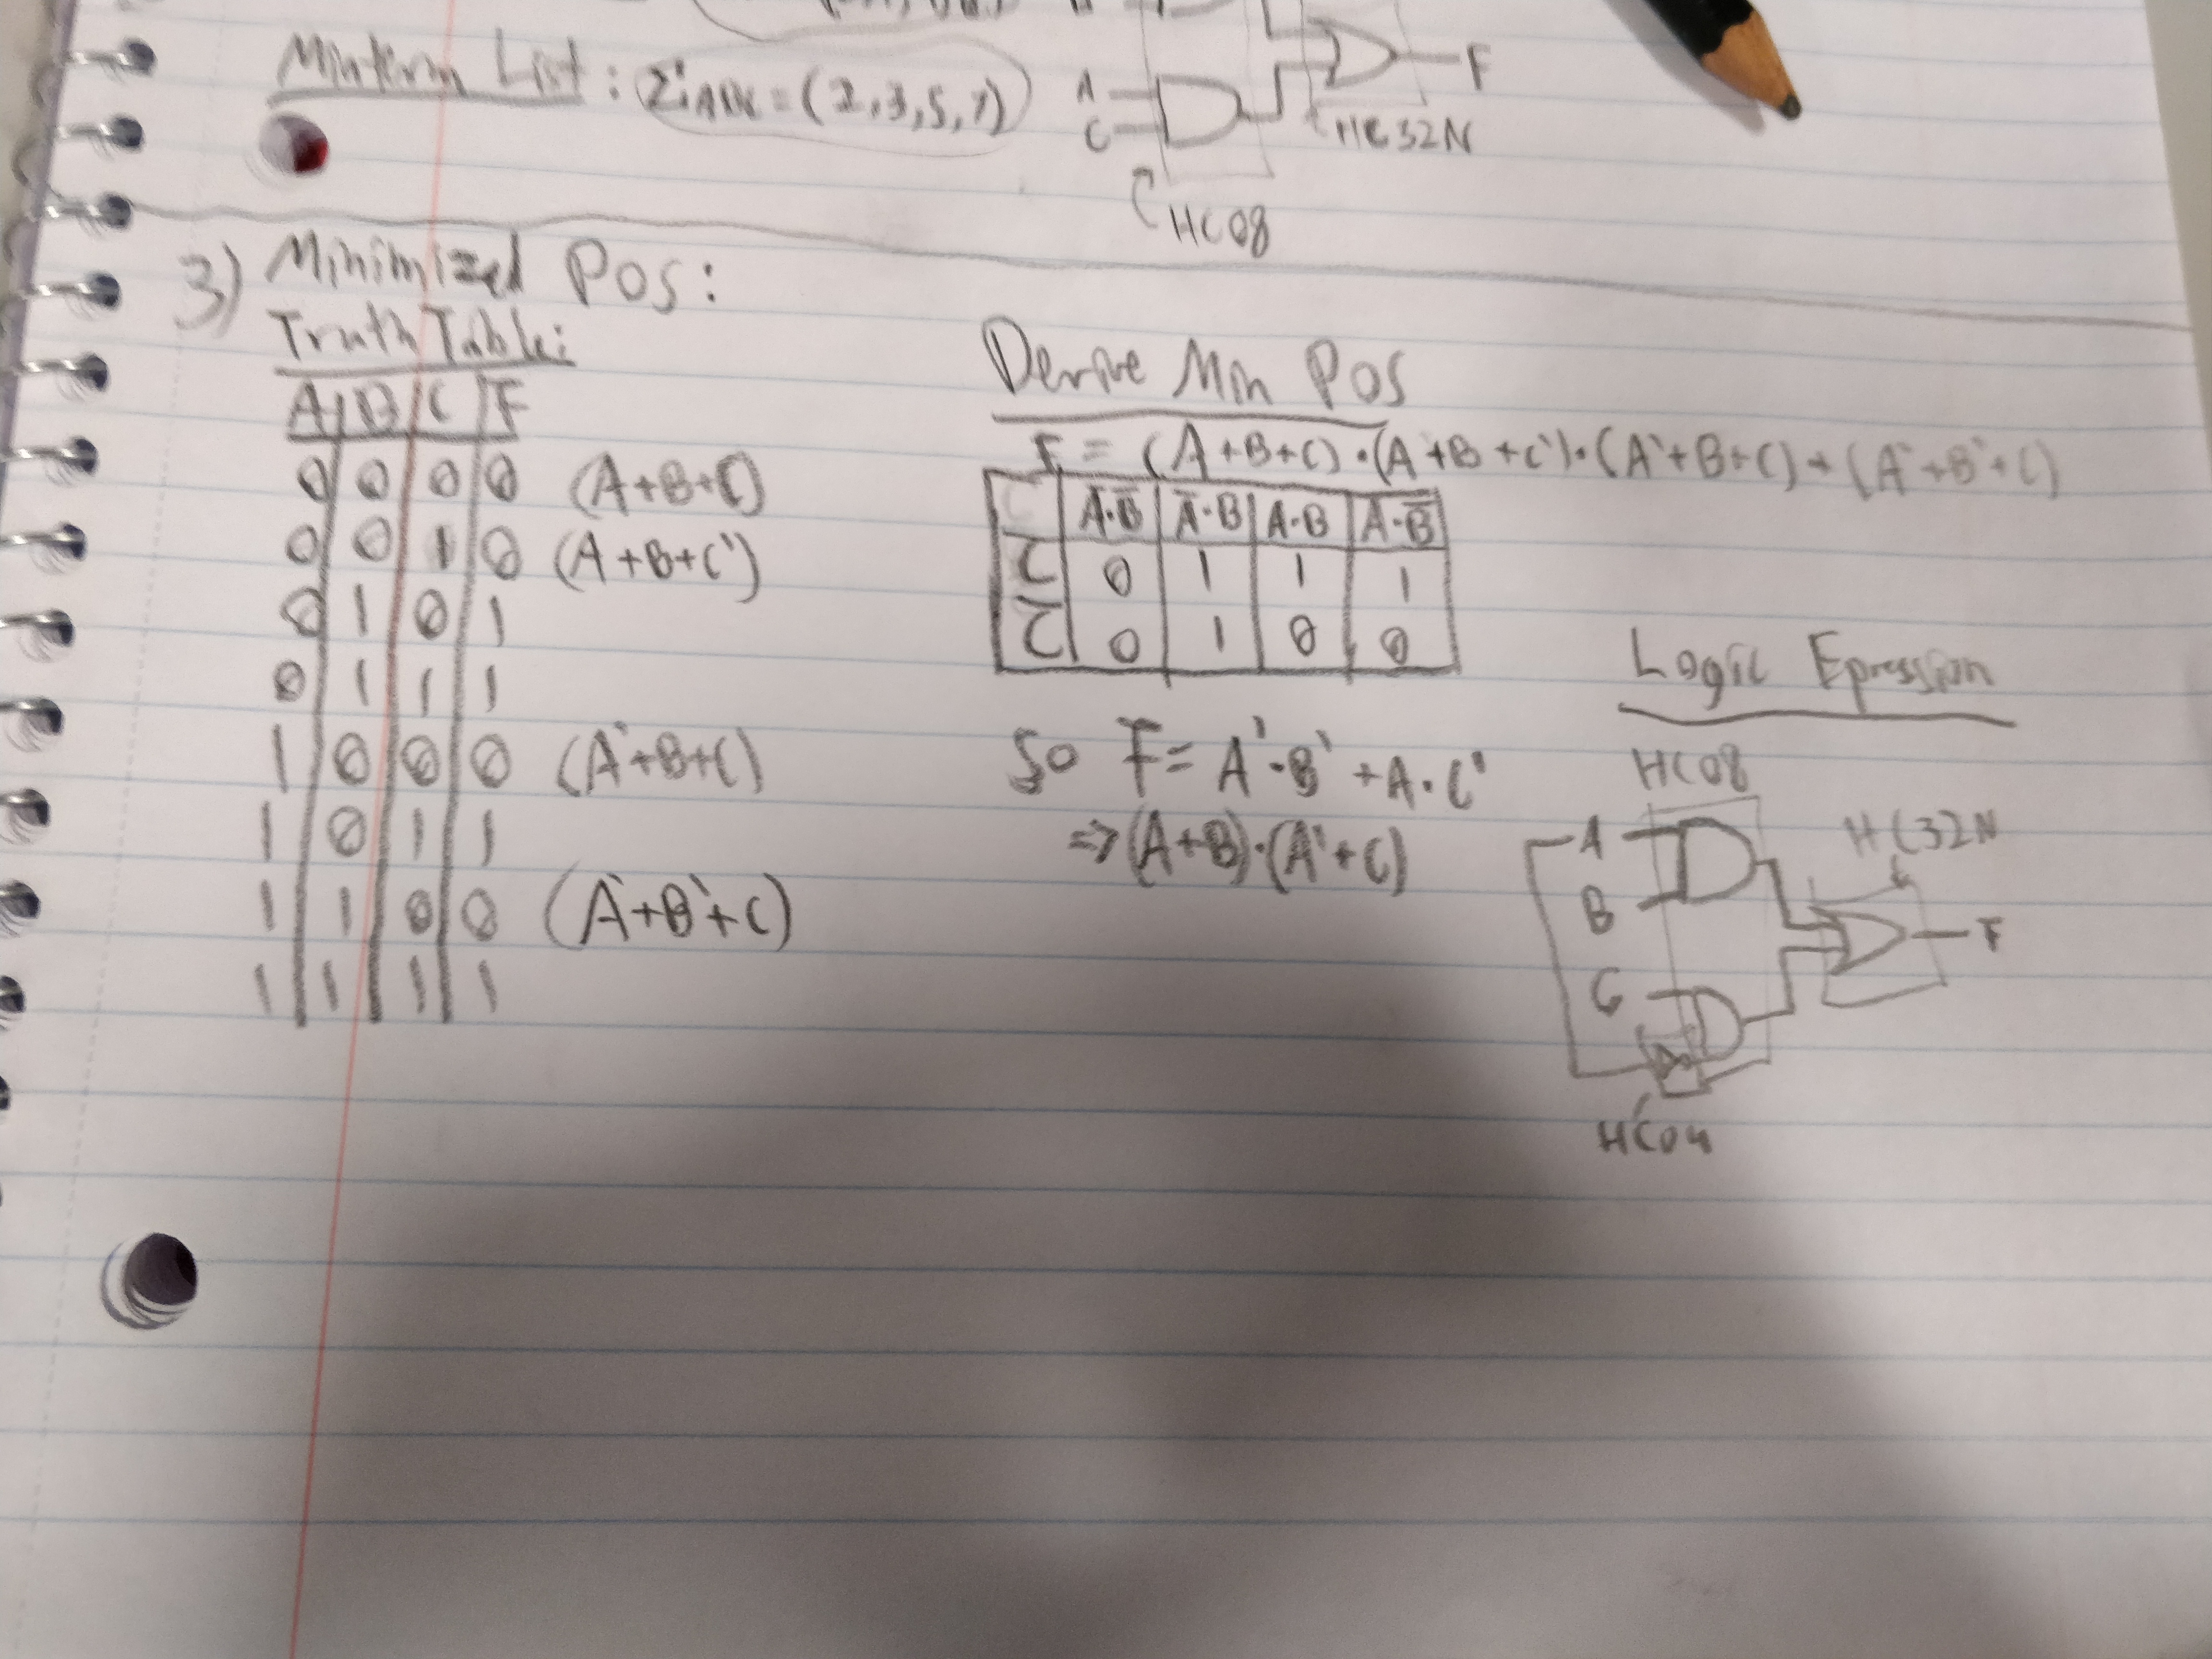 Minterm List : Σ = (2,3,5,7)
A
C
F
HC32N
HC08
3) Minimized POS:
Truth Table:
A B C F
0 0 0 0 (A+B+C)
0 0 1 0 (A+B+C')
0 1 0 1
0 1 1 1
1 0 0 0 (A'+B+C)
1 0 1 1
1 1 0 0 (A'+B'+C)
1 1 1 1
Derive Min POS
F = (A+B+C)·(A+B+C')·(A'+B+C)+(A'+B'+C)
A̅·B̅ A̅·B A·B A·B̅
0 1 1 1
C̅ 0 1 0 0
So F = A'·B' + A·C'
=> (A+B)·(A'+C)
Logic Epression
HC08
HC32N
A
B
C
F
HC04